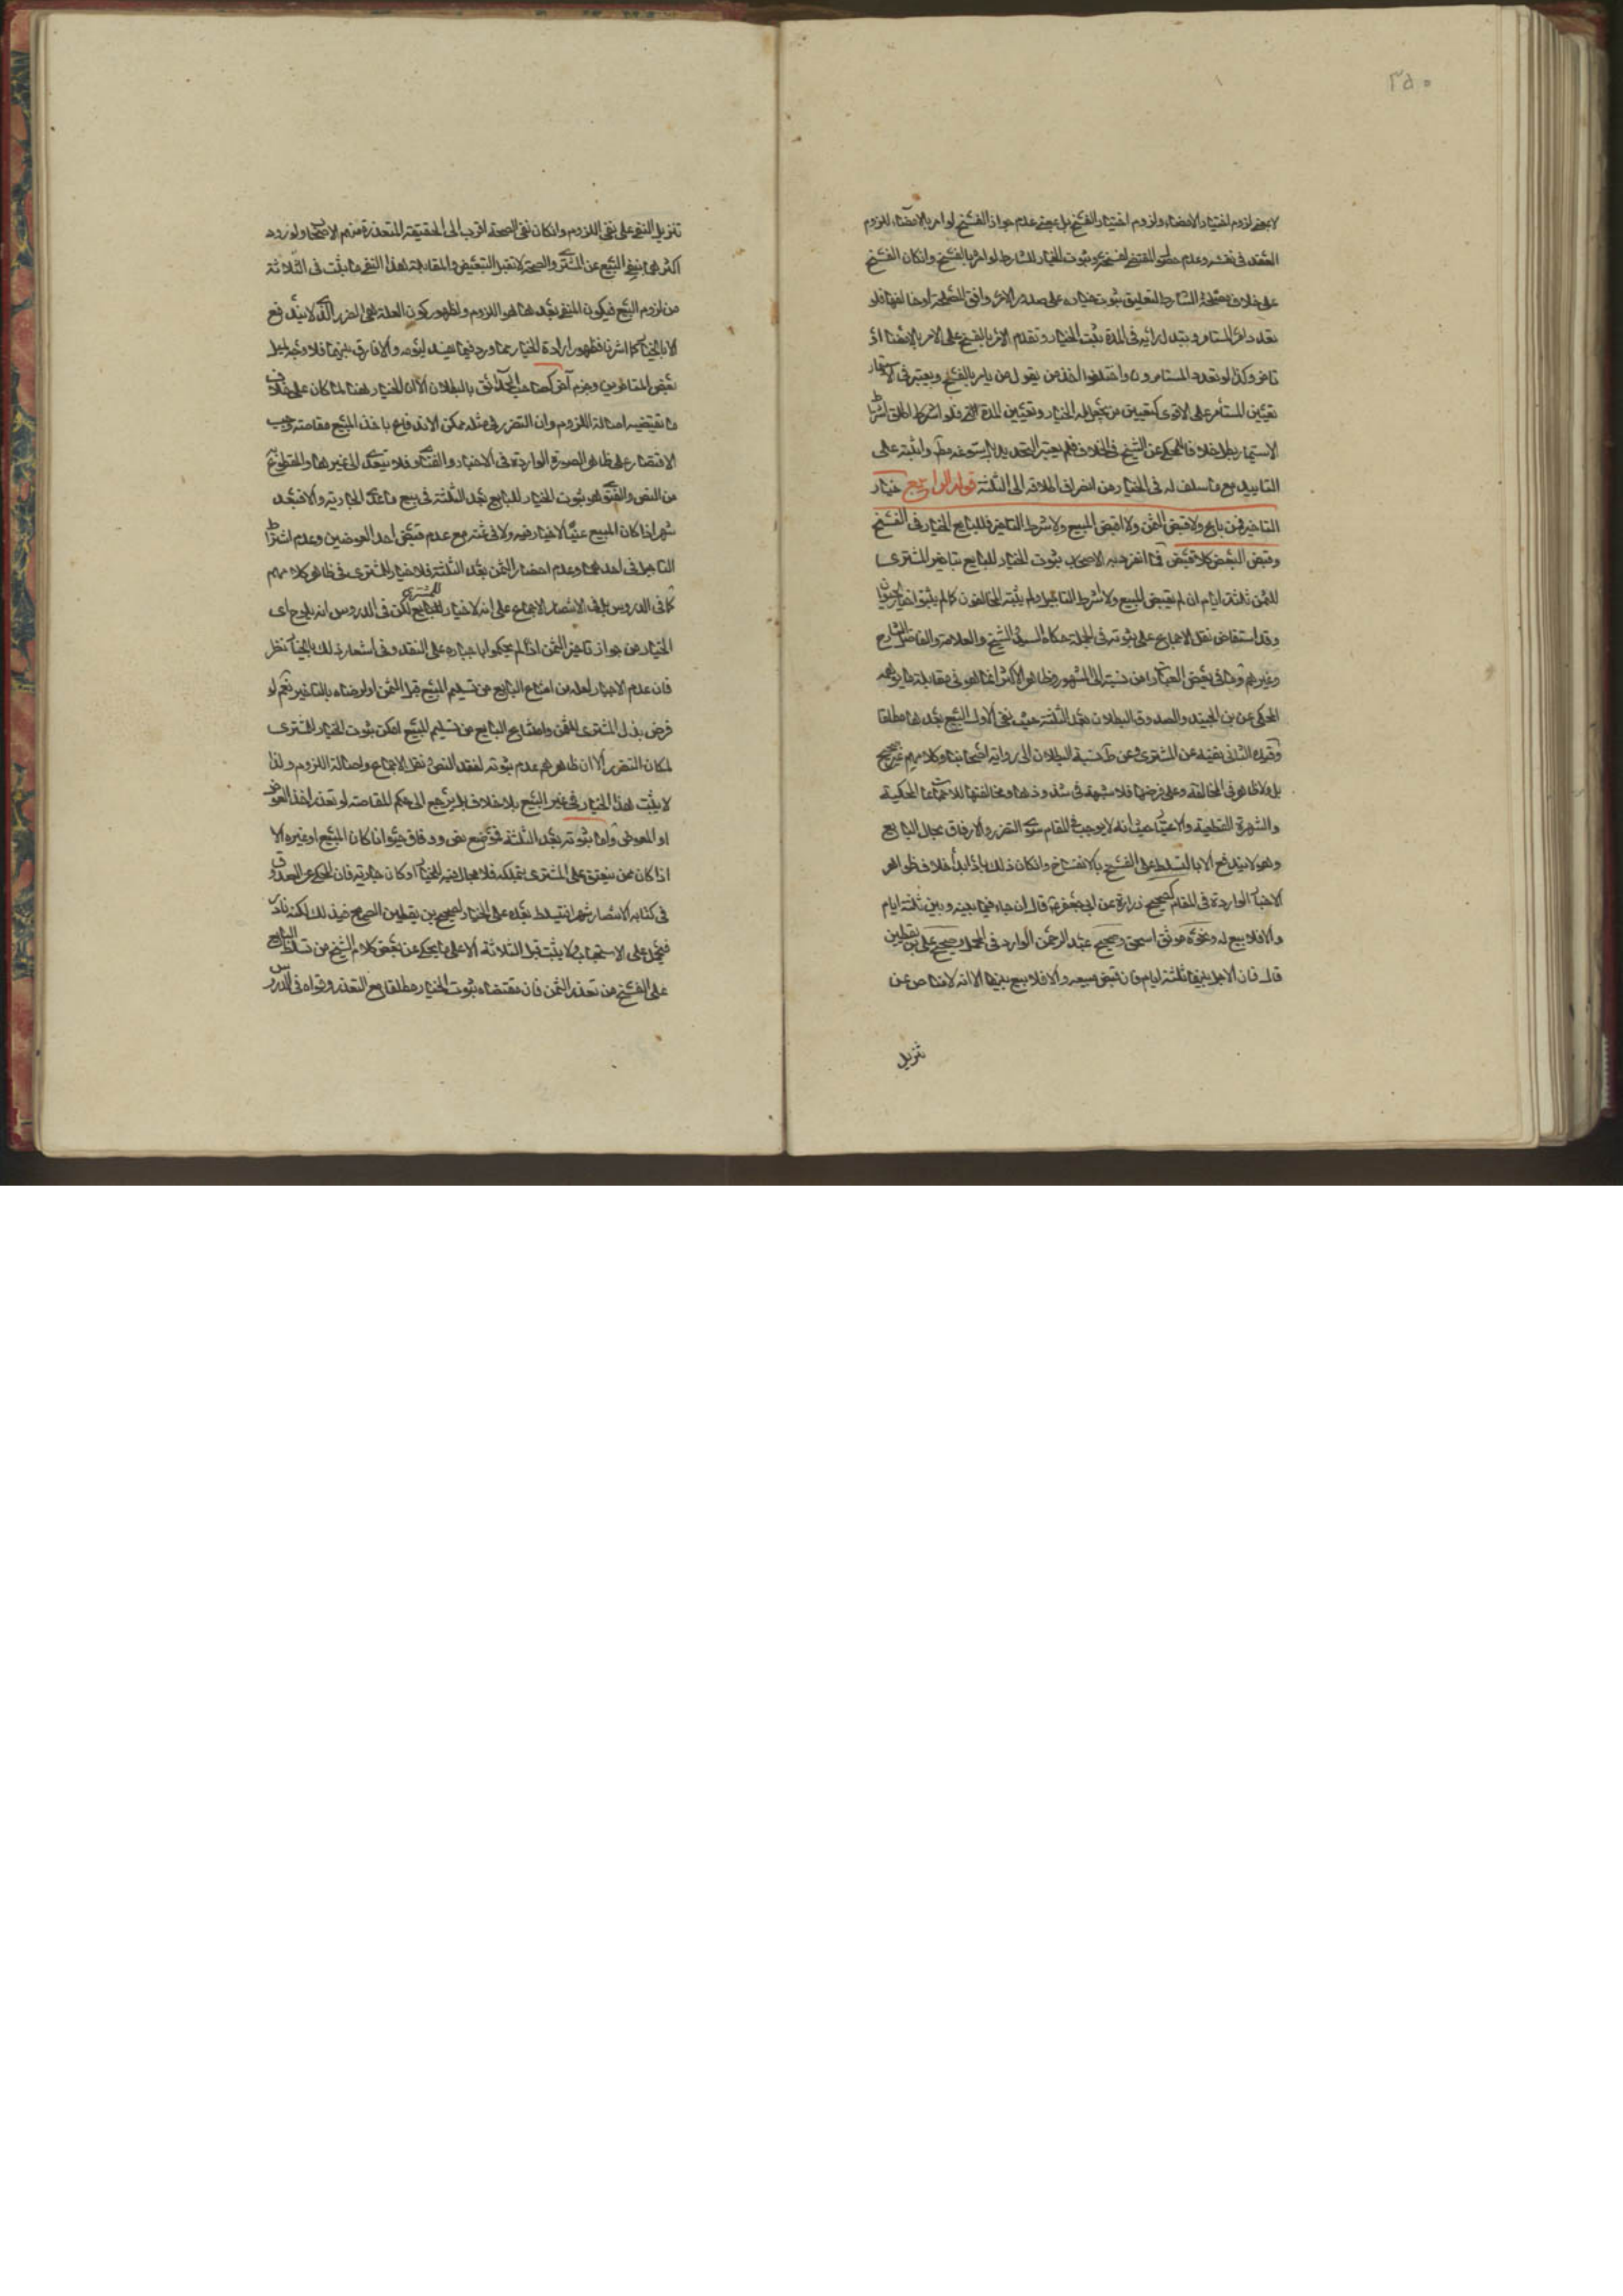 ٢٥٠
لا بمعنى لزوم اختيار الامضاء ولزوم اختيار الفسخ بل بمعنى عدم جواز الفسخ لو امر بالامضاء للزوم
العقد في نفسه وعدم المقتضي لفسخه وثبوت الخيار للشارط لو امر بالفسخ وان كان الفسخ
على خلاف مصلحة الشارط لتعليق ثبوت خياره على صدور الامر وافق المصلحة او خالفها فلو
تعدد امر المستامر وتبدل رأيه في المدة ثبت الخيار وتقدم الامر بالفسخ على الامر بالامضاء اذ
تاخر وكذا لو تعدد المستامرون واختلفوا اخذ من يقول من يامر بالفسخ ويعتبر في الاستيمار
تعيين المستأمر على الاقوى كتعيين من يجعل له الخيار وتعيين المدة فلو اشترط اطلق
الاستيمار بطل خلافا للمحكي عن الشيخ في الخلاف فلم يعتبر التحديد واثبته على
التابيد مع ما سلف له في الخيار من انصراف اطلاقه الى الثلثة قوله الرابع خيار
التاخير فمن باع ولا قبض الثمن ولا اقبض المبيع ولا شرط التاخير فللبايع الخيار في الفسخ
وقبض البعض كلا قبض مما انفرد به الاصحاب ثبوت الخيار للبايع بتاخير المشتري
للثمن ثلثة ايام ان لم يقبض المبيع ولا شرط التاجيل ولم يثبته المخالفون كما لم يثبتوا خيار الحيوان
وقد استفاض نقل الاجماع على ثبوته في الجملة حكاه السيد والشيخ والعلامة والفاضل الشارح
وغيرهم وما في بعض العبارات من نسبته الى المشهور وظاهر الاكثر انما هو في مقابلة ما يوهمه
المحكي عن بن الجنيد والصدوق البطلان بعد الثلثة حيث نفى الاول البيع بعدها مطلقا
وقيد الثاني بنفيه عن المشتري وعن ط نسبة البطلان الى رواية اصحابنا وكلامهم غير صريح
بل ولا ظاهر في المخالفة وعلى فرضها فلا شبهة في شذوذها ومخالفتها للاجماعات المحكية
والشهرة القطعية والاعتبار حيث انه لا يوجب في المقام سوى التضرر والارفاق بحال البايع
وهو لا يندفع الا بالتسلط على الفسخ بالانفساخ وان كان ذلك خلاف ظواهر
الاخبار الواردة في المقام كصحيح زرارة عن ابي جعفر ع قال ان جاء فيما بينه وبين ثلثة ايام
والا فلا بيع له ونحوه موثق اسحق وصحيح عبد الرحمن الوارد في المحمل وصحيح علي بن يقطين
قال فان الاجل بينهما ثلثة ايام فان قبض بيعه والا فلا بيع بينهما الا انه لا مناص عن
تنزيل
تنزيل النفي على نفي اللزوم وان كان نفي الصحة اقرب الى الحقيقة المتعذرة من فهم الاصحاب ولورود
اكثرها بنفي البيع عن المشتري والصحة لا تقبل التبعيض والمقابلة لهذا النفي ما يثبت في الثلاثة
من لزوم البيع فيكون المنفي بعدها هو اللزوم ولظهور كون العلة هي الضرر الذي لا يندفع
الا بالخيار كما اشرنا فظهور ارادة الخيار مما ورد فيما يفسد ليومه والا فارق بينهما فلا وجه لميل
بعض المتاخرين وجزم اخر كصاحب الحدائق بالبطلان الا ان الخيار هنا لما كان على خلاف
ما تقتضيه اصالة اللزوم وان التضرر في مثله ممكن الاندفاع باخذ المبيع مقاصة وجب
الاقتصار على ظاهر الصورة الواردة في الاخبار والفتاوى فلا يتعدى الى غيرها والمقطوع
من النص والفتوى هو ثبوت الخيار للبايع بعد الثلثة في بيع ما عدا الجارية والا فبعد
شهر اذا كان المبيع عينا لا خيار فيه ولا في ثمنه مع عدم قبض احد العوضين وعدم اشتراط
التاجيل في احدهما وعدم احضار الثمن بعد الثلثة فلا خيار للمشتري في ظاهر كلامهم
كما في الدروس بل في الانتصار الاجماع على انه لا خيار للمشتري لكن في الدروس انه يلوح اي
الخيار من جواز تاخير الثمن اذا لم يحكموا باجباره على النقد وفي اشعار ذلك بالخيار نظر
فان عدم الاجبار لعله من امتناع البايع من تسليم المبيع قبل الثمن او لرضاه بالتاخير نعم لو
فرض بذل المشتري للثمن وامتناع البايع من تسليم المبيع امكن ثبوت الخيار للمشتري
لمكان التضرر الا ان ظاهرهم عدم ثبوته لفقد النص ونقل الاجماع واصالة اللزوم ولذا
لا يثبت هذا الخيار في غير البيع بلا خلاف بل يرجع الى حكم المقاصة لو تعذر اخذ العوض
او المعوض واما ثبوته بعد الثلثة فموضع نص ووفاق حيوانا كان المبيع او غيره الا
اذا كان ممن ينعتق على المشتري بتملكه فلا مجال فيه للخيار او كان جارية فان المحكي عن الصدوق
في كتابه الانتصار شهرا يتسلط بعده على الخيار لصحيح بن يقطين الصريح في ذلك لكنه نادر
فيحمل على الاستحباب ولا يثبت قبل الثلاثة الا على ما يحكى عن بعض كلام الشيخ من تسلط البايع
على الفسخ من تعذر الثمن فان مقتضاه ثبوت الخيار مطلقا مع التعذر وقواه في الدروس